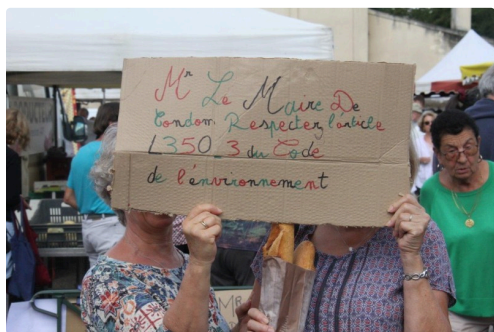 Mr Le Maire De
Condom. Respectez l'article
L350_3 du Code
de l'énvironnement